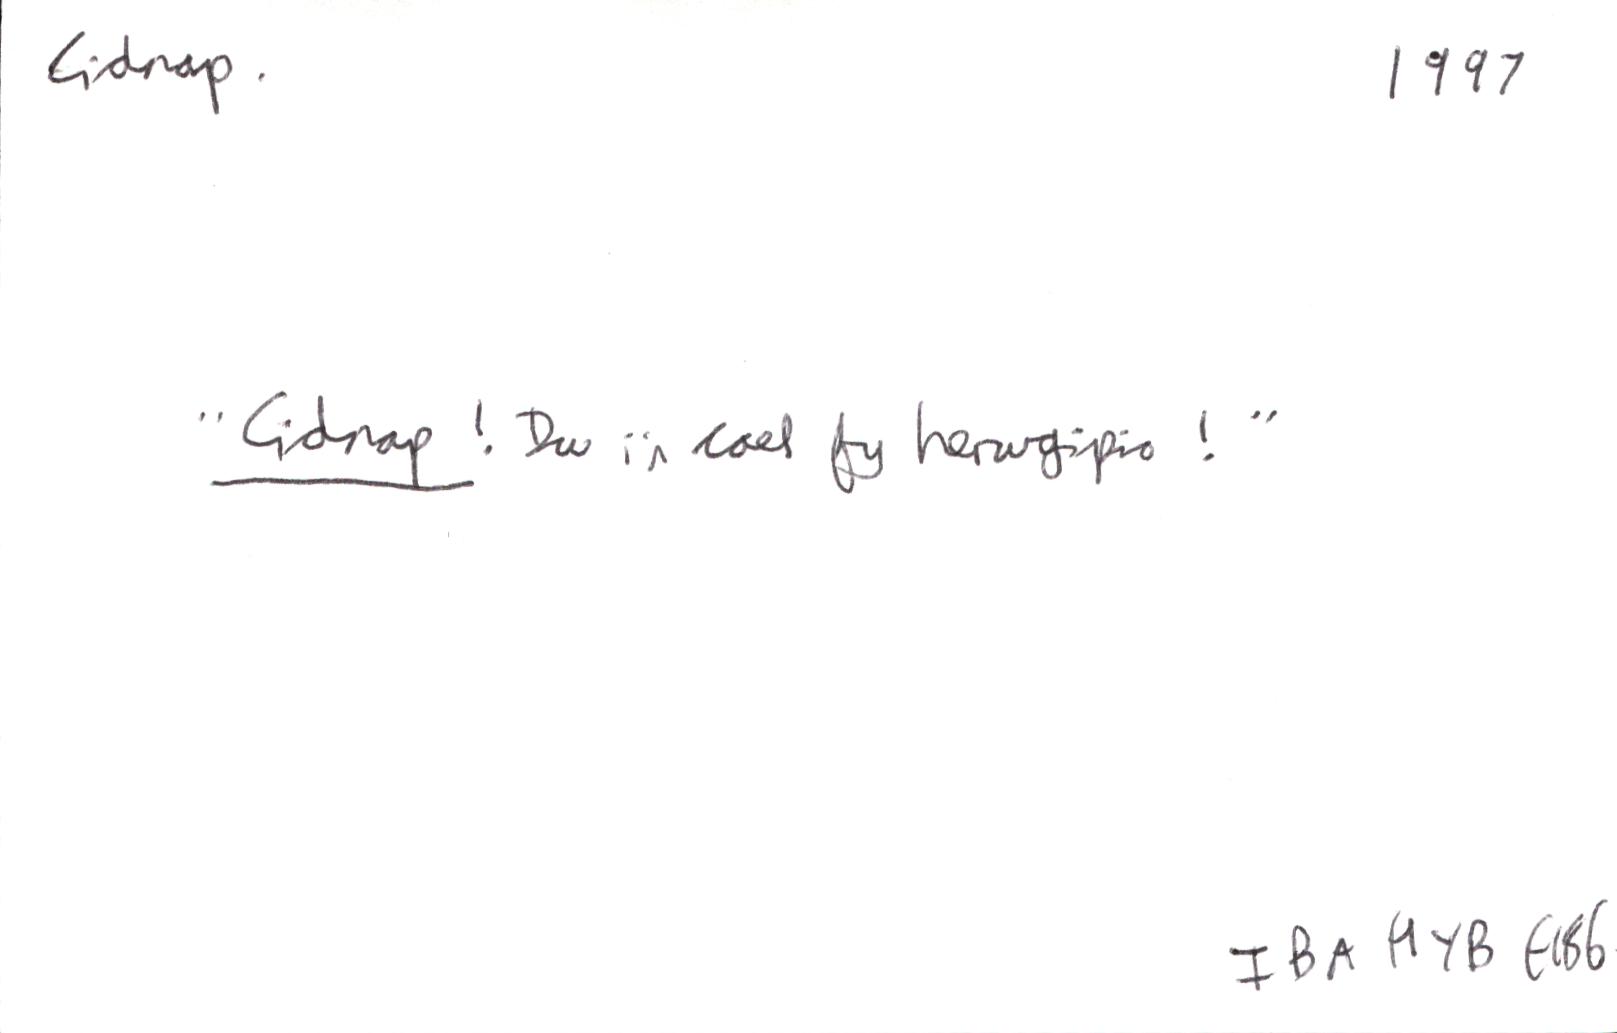 Cidnap. 1997
"Cidnap! Dw i'n cael fy herwgipio!"
IBA HYB E186